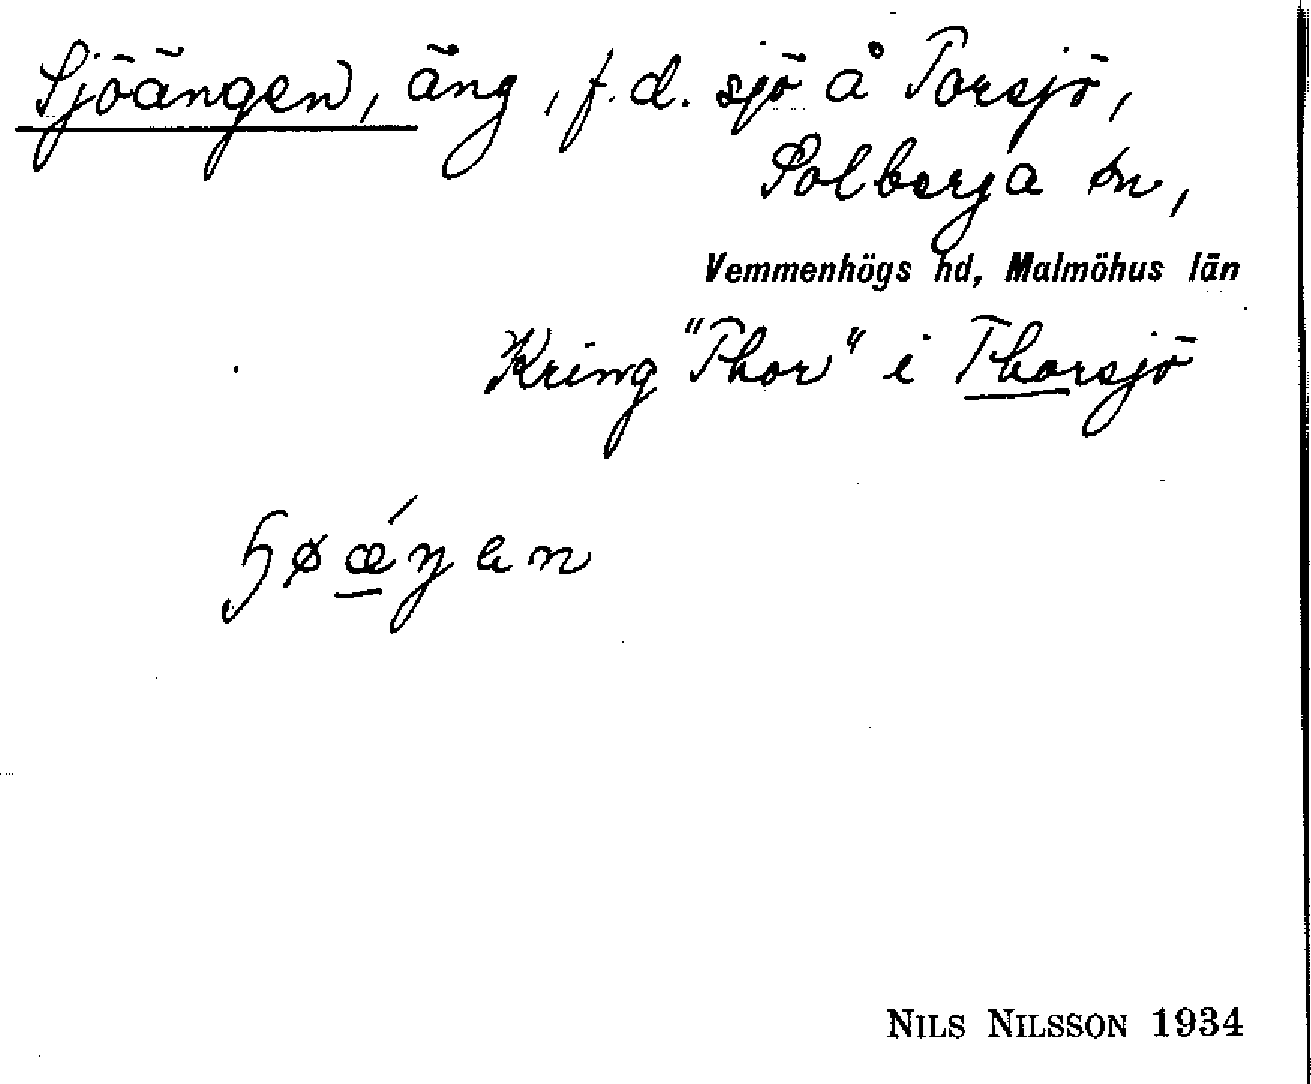 Sjöängen, äng, f.d. sjö å Torsjö,
Solberga sn,
Vemmenhögs hd, Malmöhus län
Kring "Thor" i Thorsjö
ɧøǽŋan
NILS NILSSON 1934